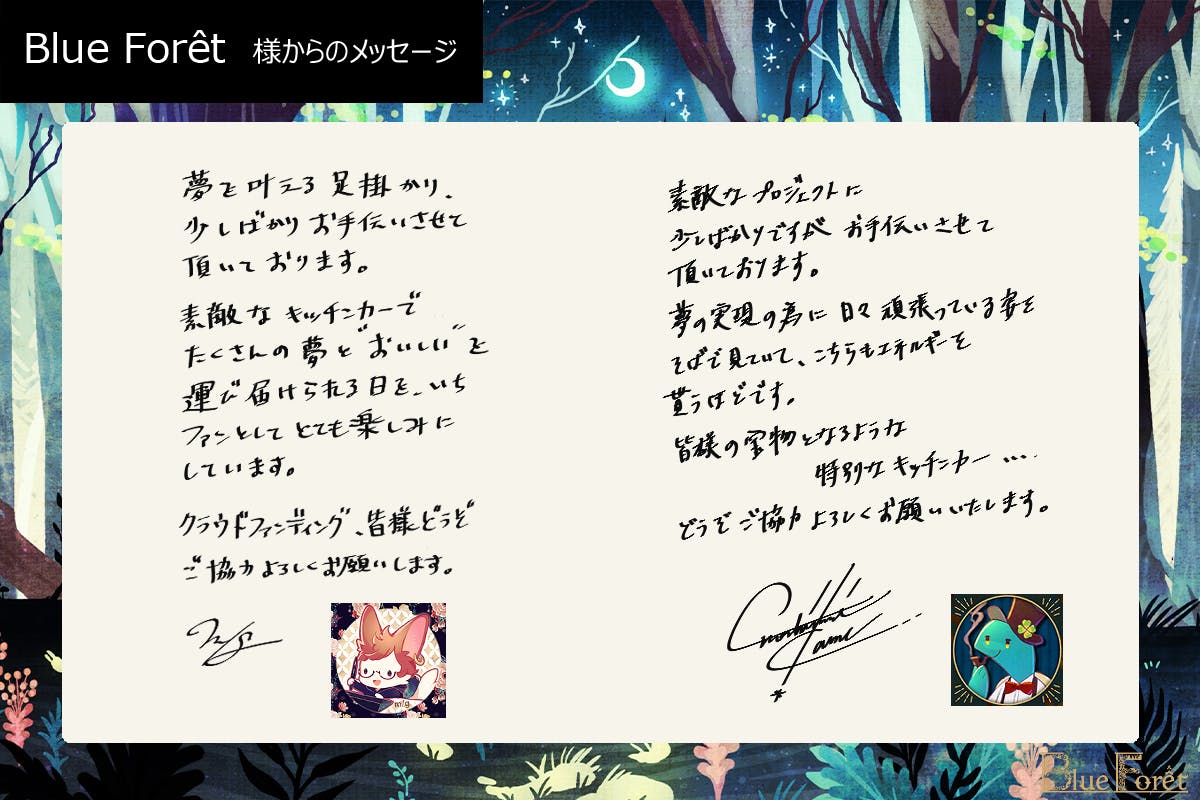 Blue Forêt 様からのメッセージ
夢を叶える足掛かり、
少しばかりお手伝いさせて
頂いております。
素敵なキッチンカーで
たくさんの夢と"おいしい"を
運び届けられる日を、いち
ファンとしてとても楽しみに
しています。
クラウドファンディング、皆様どうぞ
ご協力よろしくお願いします。
m/g
素敵なプロジェクトに
少しばかりですが お手伝いさせて
頂いております。
夢の実現の為に日々頑張っている姿を
そばで見ていて、こちらもエネルギーを
貰うほどです。
皆様の宝物となるような
特別なキッチンカー….
どうぞご協力よろしくお願いいたします。
Blue Forêt